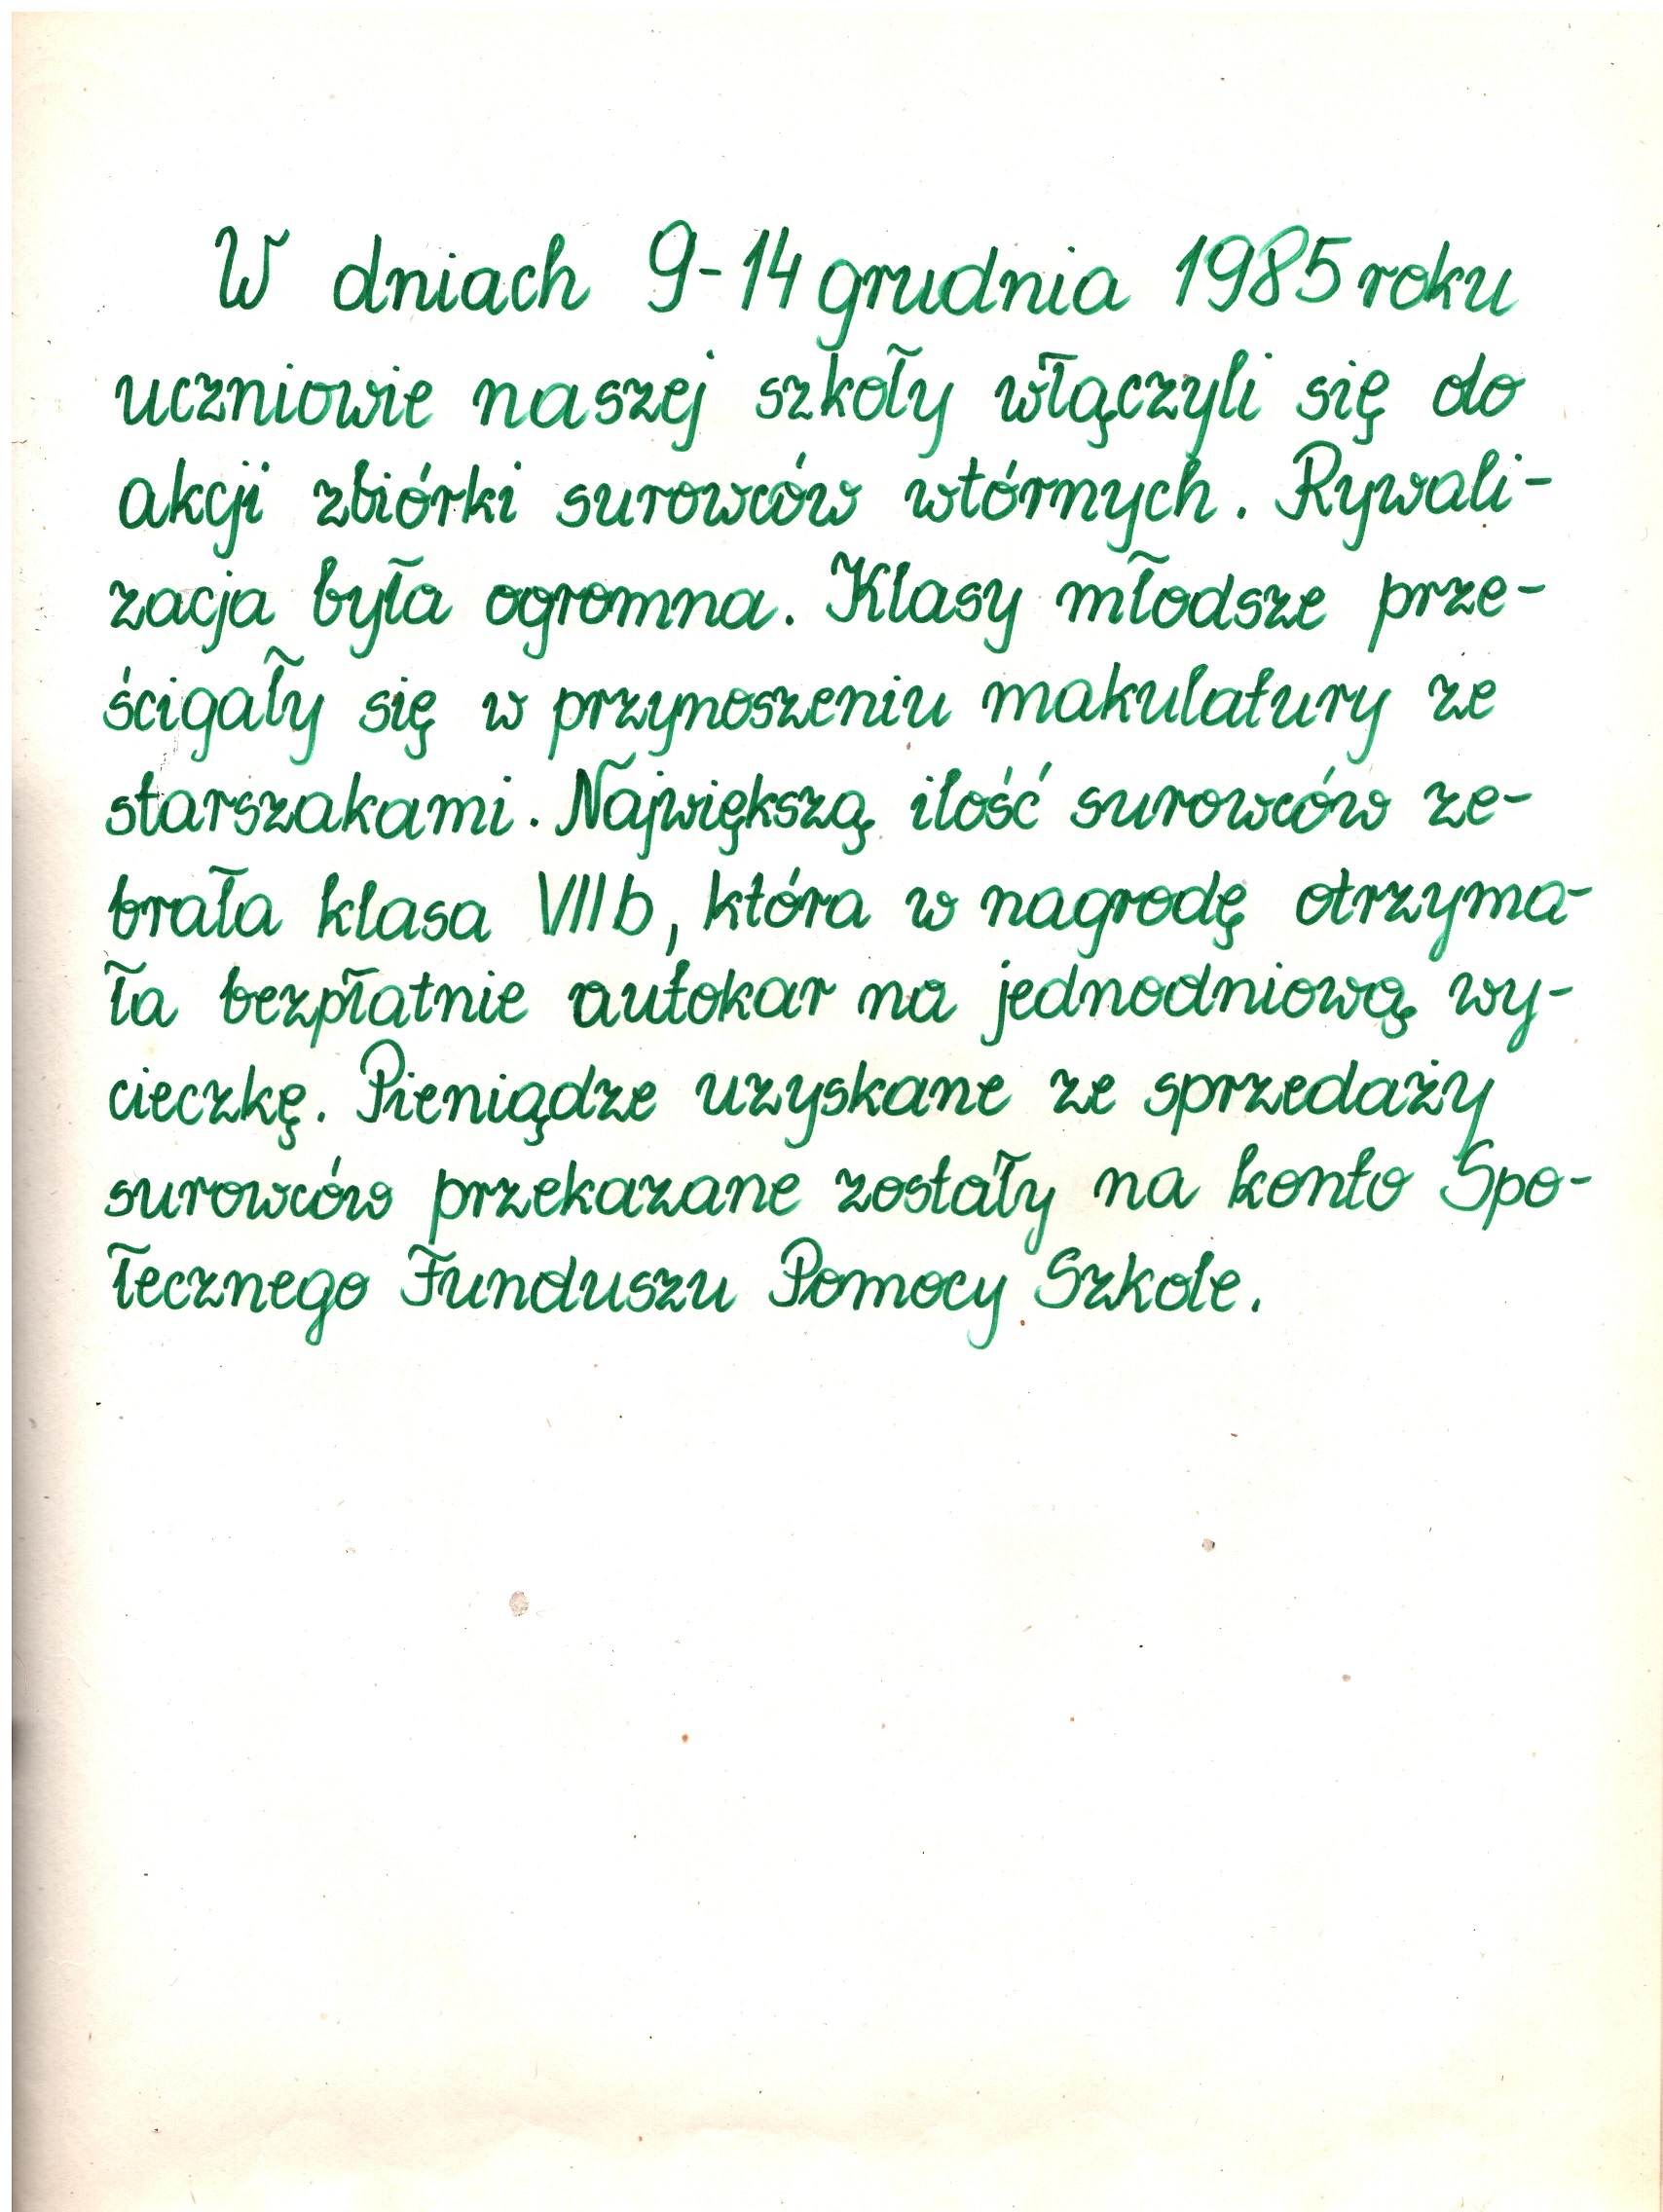 W dniach 9-14 grudnia 1985 roku
uczniowie naszej szkoły włączyli się do
akcji zbiórki surowców wtórnych. Rywali-
zacja była ogromna. Klasy młodsze prze-
ścigały się w przynoszeniu makulatury ze
starszakami. Największą ilość surowców ze-
brała klasa VII b, która w nagrodę otrzyma-
ła bezpłatnie autokar na jednodniową wy-
cieczkę. Pieniądze uzyskane ze sprzedaży
surowców przekazane zostały na konto Spo-
łecznego Funduszu Pomocy Szkole.